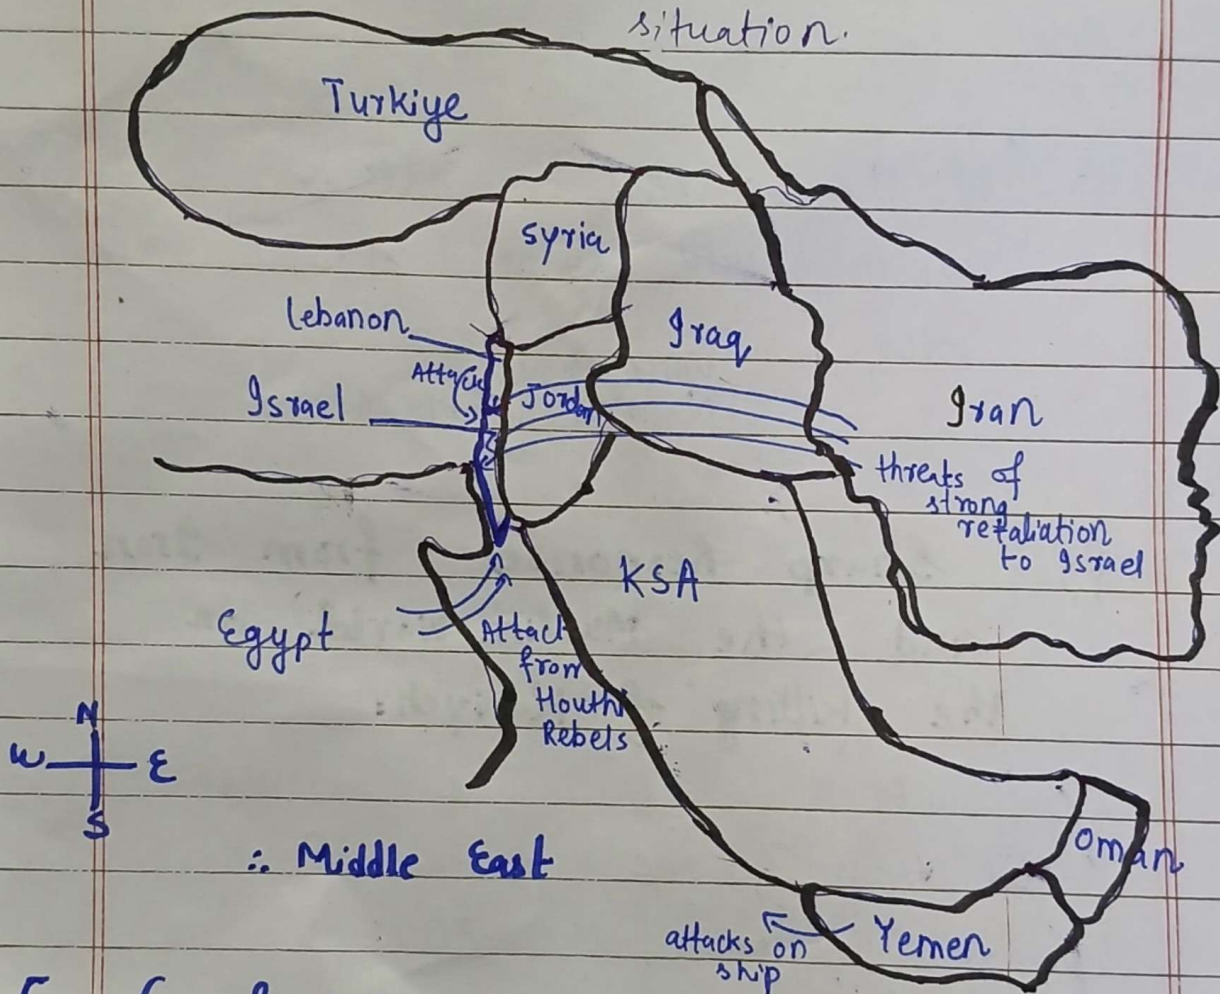 situation.
Turkiye
Syria
Lebanon
Iraq
Attack
Israel
Jordan
Iran
threats of
strong
retaliation
to Israel
KSA
Egypt
Attack
from
Houthi
Rebels
N
W
E
S
∴ Middle East
Oman
attacks on
ship
Yemen